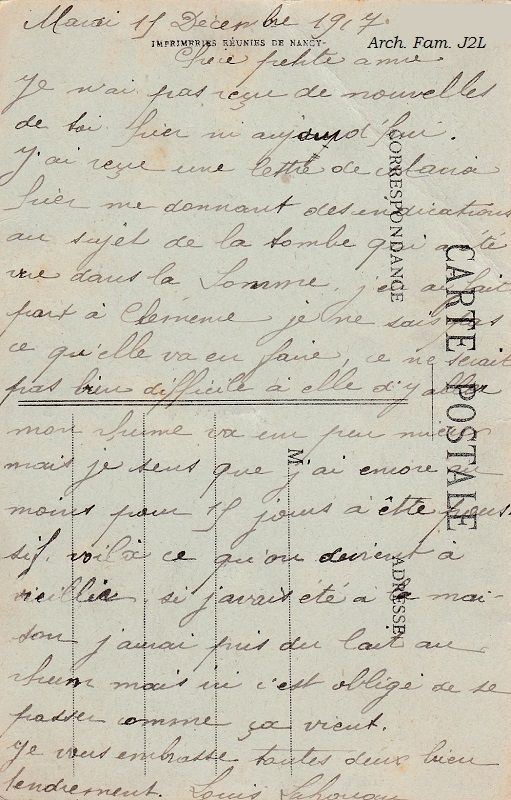 Mardi 15 Décembre 1917.
IMPRIMERIES RÉUNIES DE NANCY
Arch. Fam. J2L
Chère petite amie
Je n'ai pas reçue de nouvelles
de toi hier ni aujourd'hui.
J'ai reçue une lettre de Maria
hier me donnant des indications
au sujet de la tombe qui a été
vue dans la Somme, j'en ai fait
part à Clemence je ne sais pas
ce qu'elle va en faire, ce ne serait
pas bien difficile à elle d'y aller
mon rhume va un peu mieux
mais je sens que j'ai encore au
moins pour 15 jours à être pous
sif, voilà ce qu'on devient à
vieillir, si j'avais été à la mai-
son j'aurai pris du lait au
rhum mais ici c'est obligé de se
passer comme ça vient.
Je vous embrasse toutes deux bien
tendrement. Louis
CARTE POSTALE
CORRESPONDANCE
ADRESSE
M